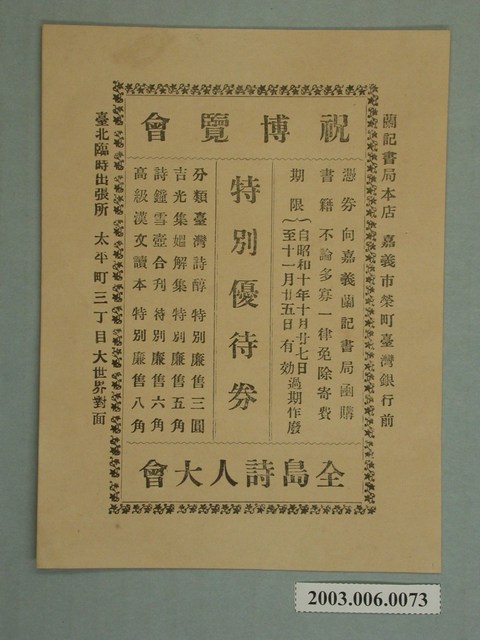 蘭記書局本店 嘉義市榮町臺灣銀行前
祝博覽會
憑券向嘉義蘭記書局函購
書籍不論多寡一律免除寄費
期限 自昭和十年十月廿七日
至十一月廿五日有効過期作廢
特別優待券
分類臺灣詩醇 特別廉售三圓
吉光集媼解集 特別廉售五角
詩鐘雪壺合刋 特別廉售六角
高級漢文讀本 特別廉售八角
全島詩人大會
臺北臨時出張所 太平町三丁目大世界對面
2003.006.0073